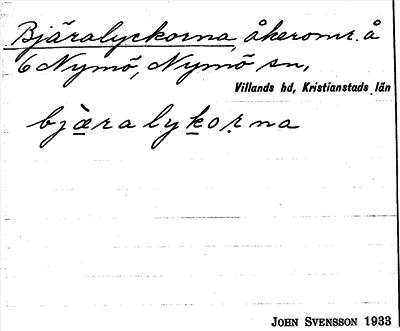 Bjäralyckorna, åkeromr. å
6 Nymö, Nymö sn,
Villands hd, Kristianstads län
bjæ̀ralykoṛna
JOHN SVENSSON 1933